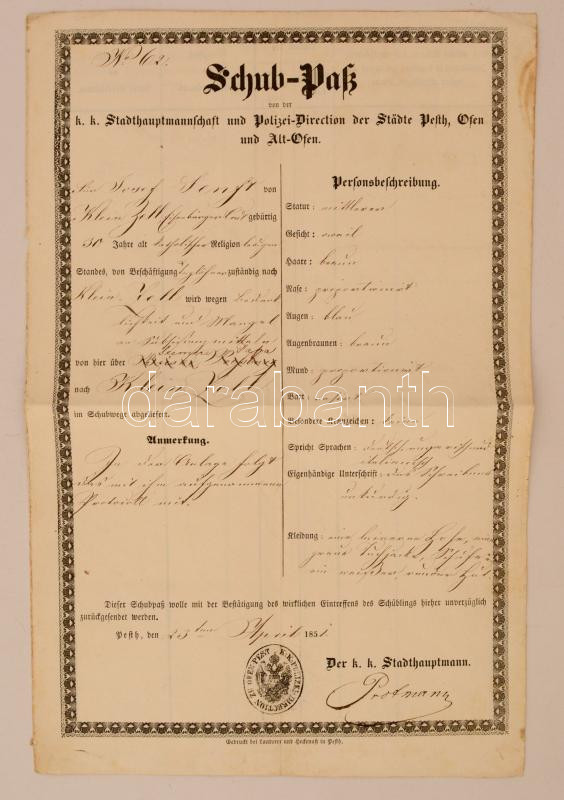 Nro 62:
Schub-Paß
von der
k. k. Stadthauptmannschaft und Polizei-Direction der Städte Pesth, Ofen
und Alt-Ofen.
Josef Senft von
Klein Zell Eisenburger gebürtig
50 Jahre alt katholischer Religion ledigen
Standes, von Beschäftigung Taglöhner zuständig nach
Klein-Zell wird wegen
und Mangel
an
von hier über
nach Klein Zell
im Schubwege abgeliefert.
Anmerkung.
In der Anlage folgt
das mit ihm aufgenommene
Protocoll mit.
Personsbeschreibung.
Statur: mittlerer
Gesicht: oval
Haare: braun
Nase: proportionirt
Augen: blau
Augenbraunen: braun
Mund: proportionirt
Bart:
Besondere Kennzeichen: keine
Spricht Sprachen: deutsch, ungarisch und
italienisch
Eigenhändige Unterschrift: des Schreibens
unkundig.
Kleidung: eine leinerne Hose, eine
graue Tuchjacke, Schuhe
ein runder Hut.
Dieser Schubpaß wolle mit der Bestätigung des wirklichen Eintreffens des Schüblings hieher unverzüglich
zurückgesendet werden.
Pesth, den 23ten April 1851.
K. K. POLIZEI-DIRECTION ZU OFEN-PEST
Der k. k. Stadthauptmann.
Protmann
Gedruckt bei Landerer und Heckenast in Pesth.
darabanth